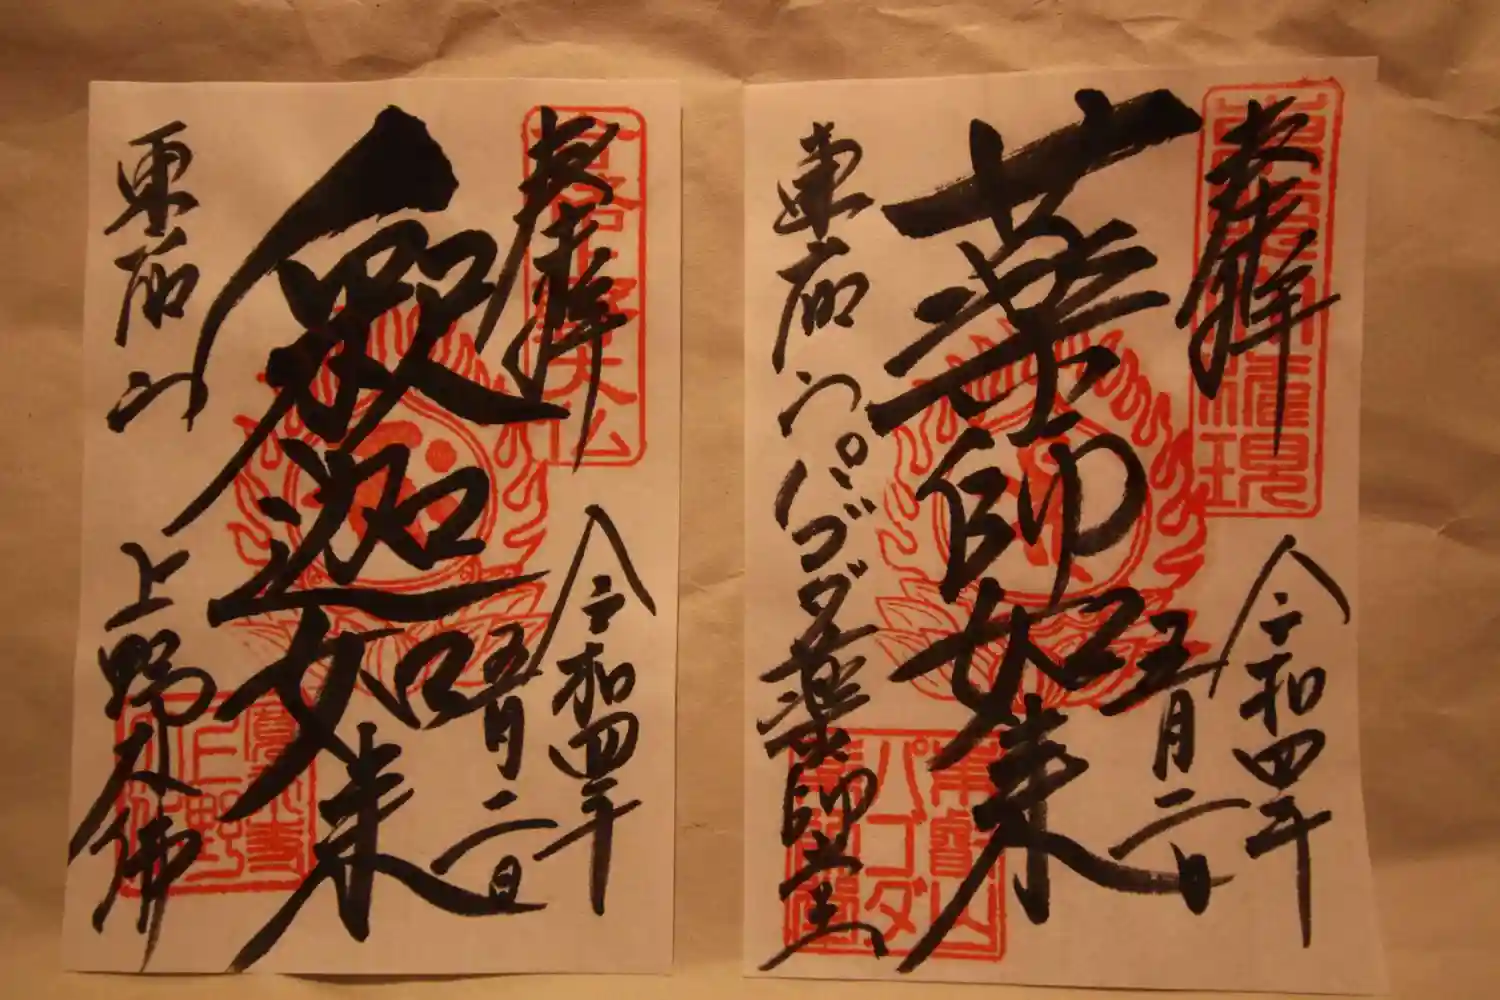 奉拝
令和四年
五月二日
薬師如来
東叡山
パゴダ薬師堂
東叡山
パゴダ
薬師堂
奉拝
令和四年
五月二日
釈迦如来
東叡山
上野大佛
寛永寺
上野
大仏